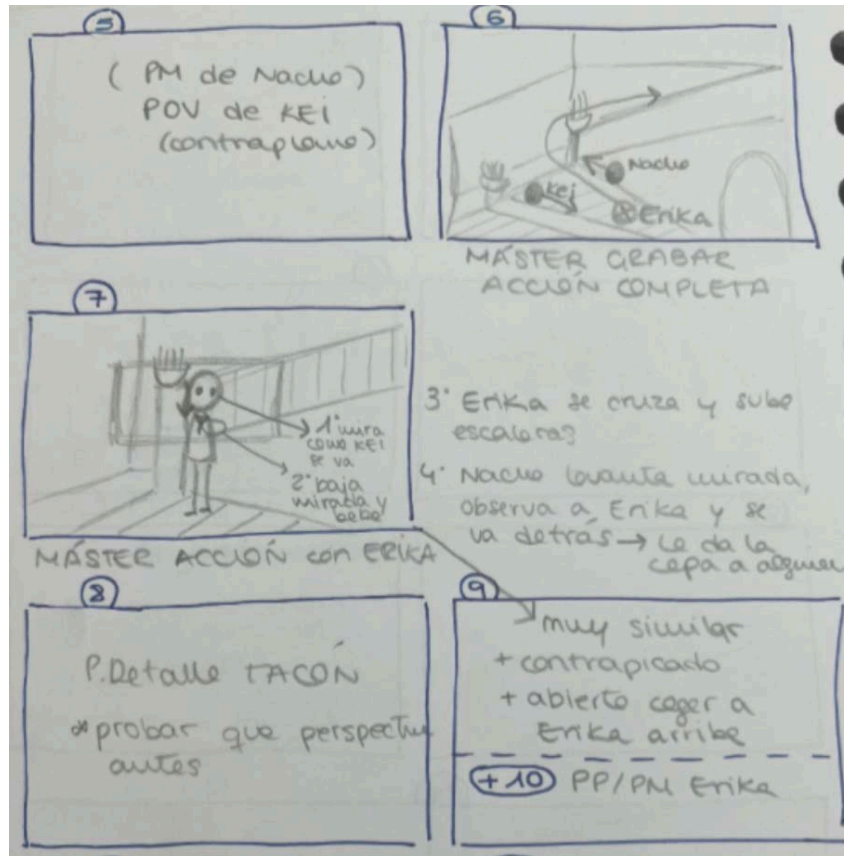 5
( PM de Nacho)
POV de KEI
(contraplano)
6
Nacho
Kej
Erika
MÁSTER GRABAR
ACCIÓN COMPLETA
7
1º mira
como KEI
se va
2º baja
mirada y
bebe
MÁSTER ACCIÓN con ERIKA
3º Erika se cruza y sube
escaleras
4º Nacho levanta mirada,
observa a Erika y se
va detrás → Le da la
copa a alguien
8
P.Detalle TACÓN
* probar que perspectiva
antes
9
muy similar
+ contrapicado
+ abierto coger a
Erika arriba
+10 PP/PM Erika